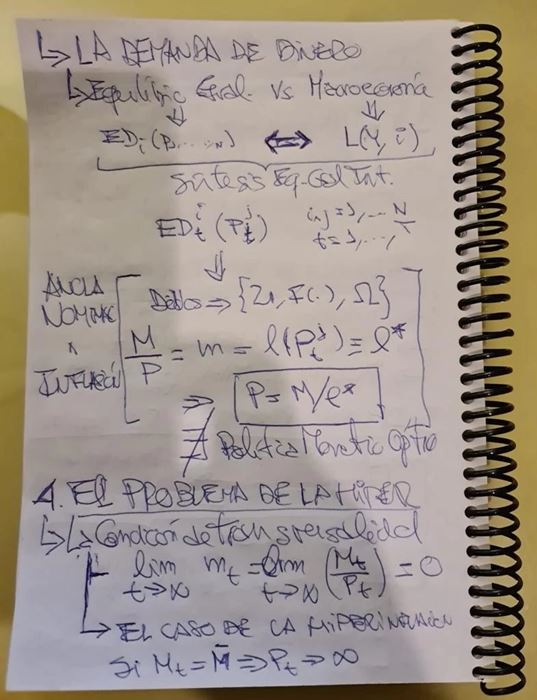 ↳ LA DEMANDA DE DINERO
↳ Equilibrio Gral. vs Macroeconomía
⇓ ⇓
ED_i (P_1, ..., N) ⇔ L(Y, i)
Síntesis Eq. Gral Int.
ED_t^i (P_t^j) i,j = 1, ... N
t = 1, ..., T
⇓
ANCLA NOMINAL A INFLACIÓN
Dados ⇒ {U, F(.), Ω}
M/P = m = l(P_t^j) ≡ l*
⇒ P = M/l*
∄ Política Monetaria Óptima
4. EL PROBLEMA DE LA HIPER
↳ ↳ Condición de transversalidad
lim t→∞ m_t = lim t→∞ (M_t/P_t) = 0
↳ EL CASO DE LA HIPERINFLACIÓN
Si M_t = M̄ ⇒ P_t → ∞